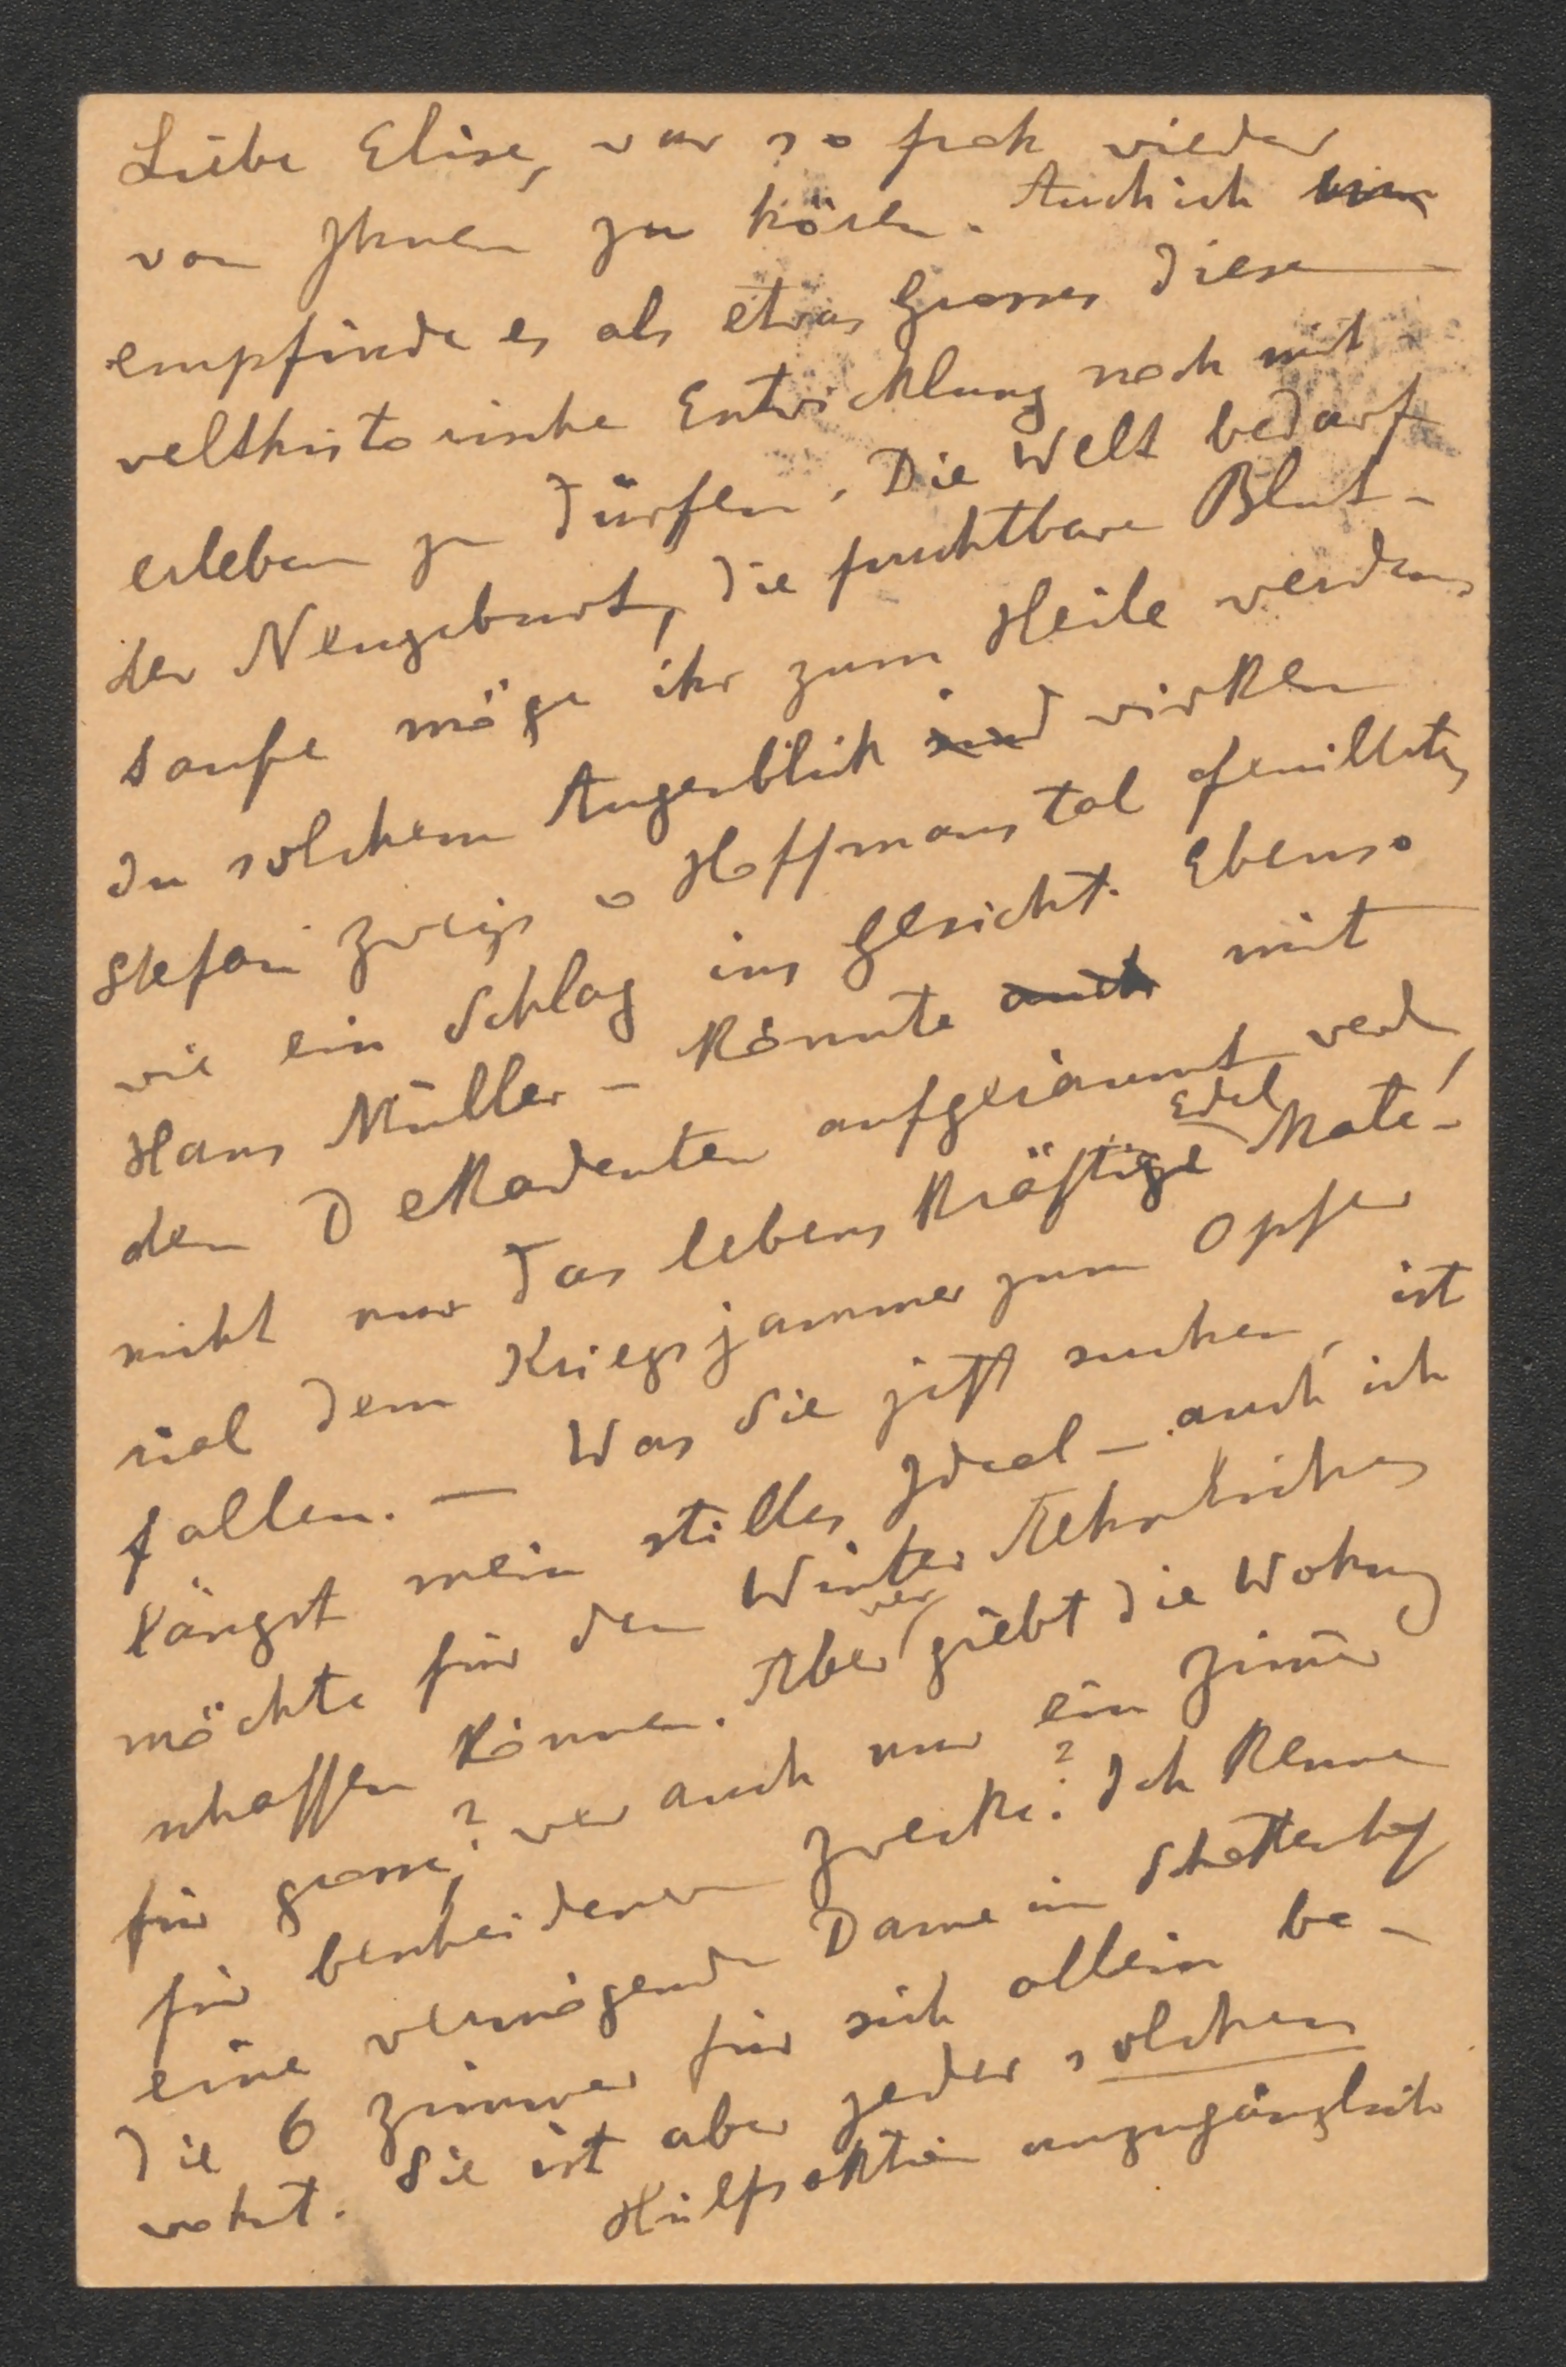 Liebe Elise, war so froh wieder
von Ihnen zu hören. Auch ich bin
empfinde es als etwas Grosses diese
welthistorische Entwicklung noch mit
erleben zu dürfen. Die Welt bedarf
der Neugeburt, die furchtbare Blut-
taufe möge ihr zum Heile werden,
In solchem Augenblick sind wirken
Stefan Zweigs u Hoffmanstal feuilletons
wie ein Schlag ins Gesicht. Ebenso
Hans Müller – Könnte auch mit
den Dekadenten aufgeräumt werden
nicht nur das lebenskräftige Edel Mate-
rial dem Kriegsjammer zum Opfer
fallen. — Was Sie jetzt suchen, ist
längst mein stilles Ideal – auch ich
möchte für den Winter Aehnliches
schaffen können. Aber wer giebt die Wohnung
für grosse? wer auch nur ein Zimmer
für bescheidenere Zwecke? Ich kenne
eine vermögende Dame im Schottenhof
die 6 Zimmer für sich allein be-
wohnt. Sie ist aber jeder solchen
Hülfsaktion unzugänglich